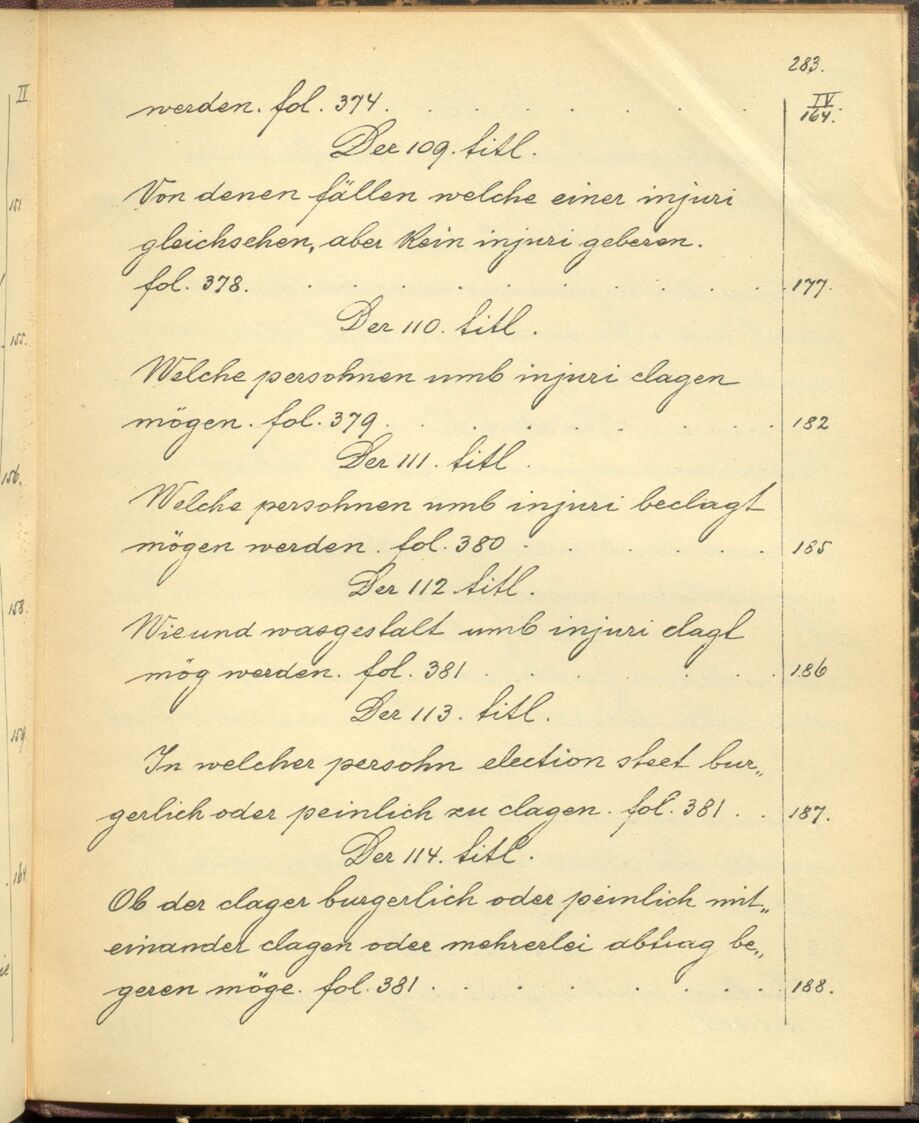 283.
II.
IV
werden. fol. 374. 164.
Der 109. titl.
Von denen fällen welche einer injuri
151
gleichsehen, aber kein injuri geberen.
fol. 378. 177.
Der 110. titl.
155.
Welche persohnen umb injuri clagen
mögen. fol. 379. 182
Der 111. titl.
156.
Welche persohnen umb injuri beclagt
mögen werden. fol. 380 185
Der 112. titl.
158.
Wie und wasgestalt umb injuri clagt
mög werden. fol. 381 186
Der 113. titl.
159.
In welcher persohn election steet bur„
gerlich oder peinlich zu clagen. fol. 381. 187.
Der 114. titl.
164.
Ob der clager burgerlich oder peinlich mit„
einander clagen oder mehrerlei abtrag be„
geren möge. fol. 381. 188.